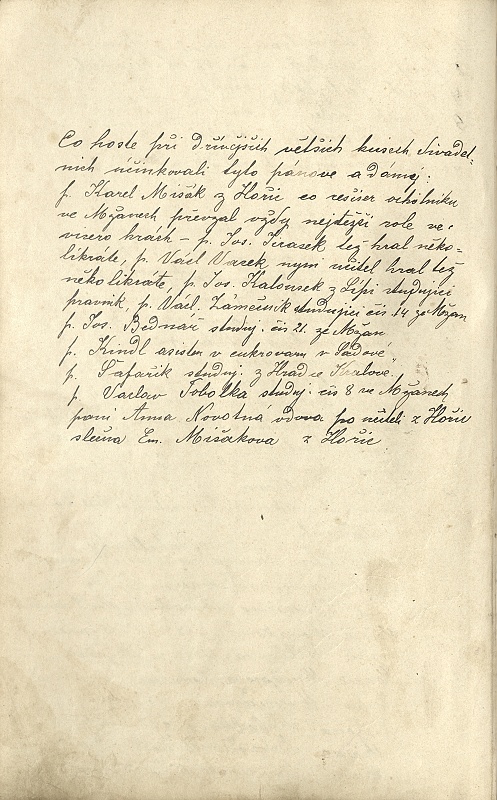 Co hoste při dřívějších větších kusech divadel-
ních účinkovali tyto pánove a dámy.
p. Karel Mišák z Hořic co resiser ochotníku
ve Mžanech převzal vždy nejtěžší role ve
visero hrách – p. Jos. Jirasek tež hral něko-
likrate, p. Václ Vacek nyni učitel hral též
několikráte, p. Jos. Kalousek z Lípi studující
pravnik, p. Václ. Zámečník studujíci čís 14 ze Mžan
p. Jos. Bednář studuj. čís 21. ze Mžan
p. Kindl asisten v cukrovaru v Sadové
p. Šafařik studuj. z Hradce Kralove
p. Vaclav Tobolka studuj. čís 8 ve Mžanech
pani Anna Novotná vdova po učiteli z Hořic
slečna Em. Mišakova z Hořic